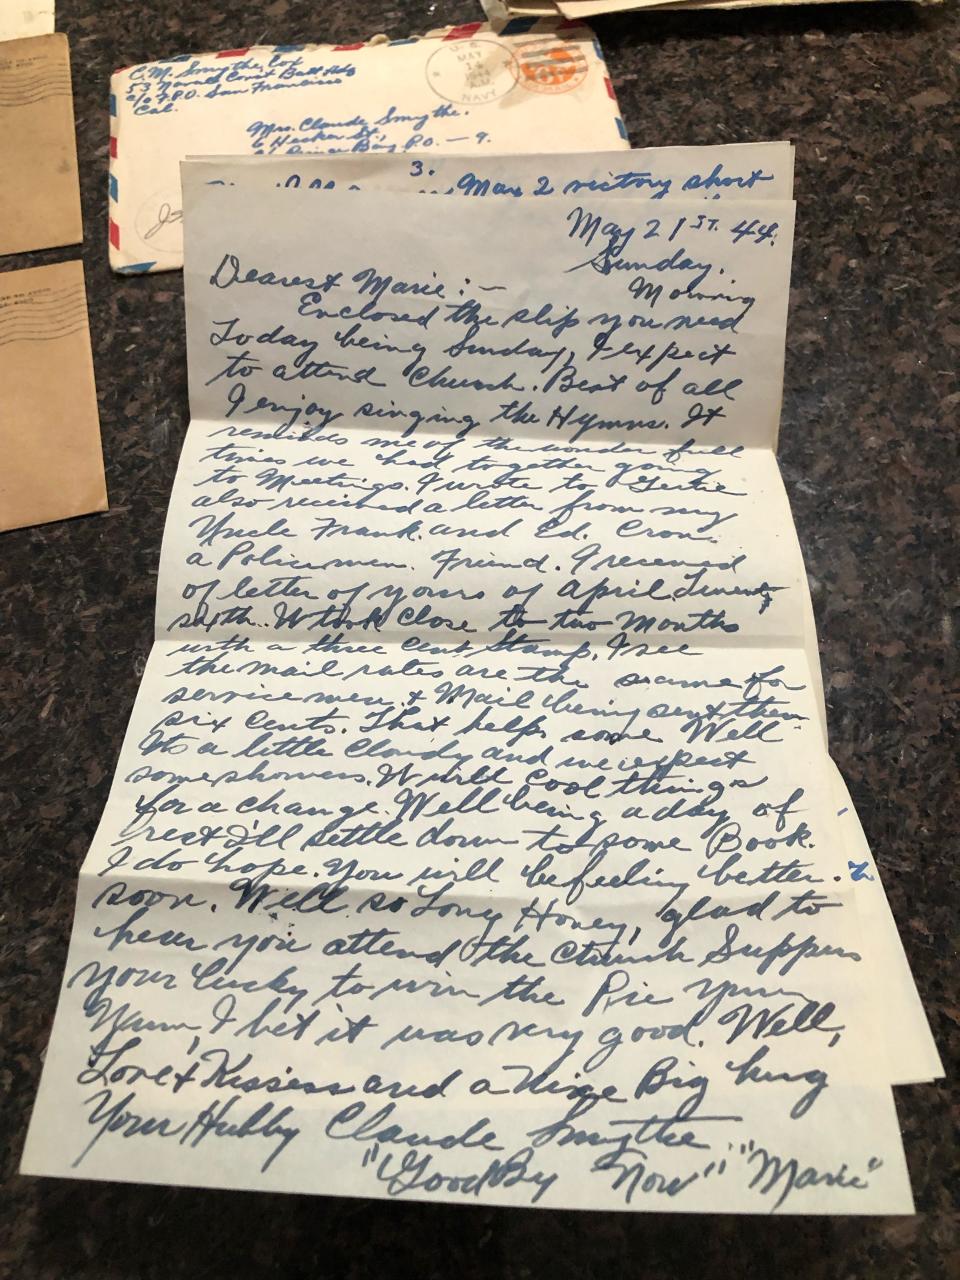 C.M. Smythe, Cox
53 Naval Const Batt
c/o F.P.O. San Francisco
Cal.
U.S.
MAY
1944
A.M.
NAVY
Mrs. Claude Smythe.
6 Hecker St.,
Prince Bay P.O. — 9.
3.
May 2 victory short
May 21ST. 44.
Sunday.
Morning
Dearest Marie : —
Enclosed the slip you need
Today being Sunday, I expect
to attend Church. Best of all
I enjoy singing the Hymns. It
reminds me of the wonder full
times we had together going
to Meetings. I wrote to Gertie
also received a letter from my
Uncle Frank and Ed. Cron.
a Policeman. Friend. I received
of letter of yours of April Twenty
sixth. It took Close to two Months
with a three Cent Stamp. I see
the mail rates are the same for
service men & Mail being sent them
six Cents. That helps some Well
Its a little Cloudy and we expect
some showers. It will Cool things
for a change. Well being a day of
rest I'll settle down to some Book.
I do hope. You will be feeling better.
soon. Well so Long Honey, glad to
hear you attend the Church Suppers
your Lucky to win the Pie Yum
Yum, I bet it was very good. Well,
Love & Kissess and a Nice Big hug
Your Hubby Claude Smythe
"GoodBy Now" "Marie"